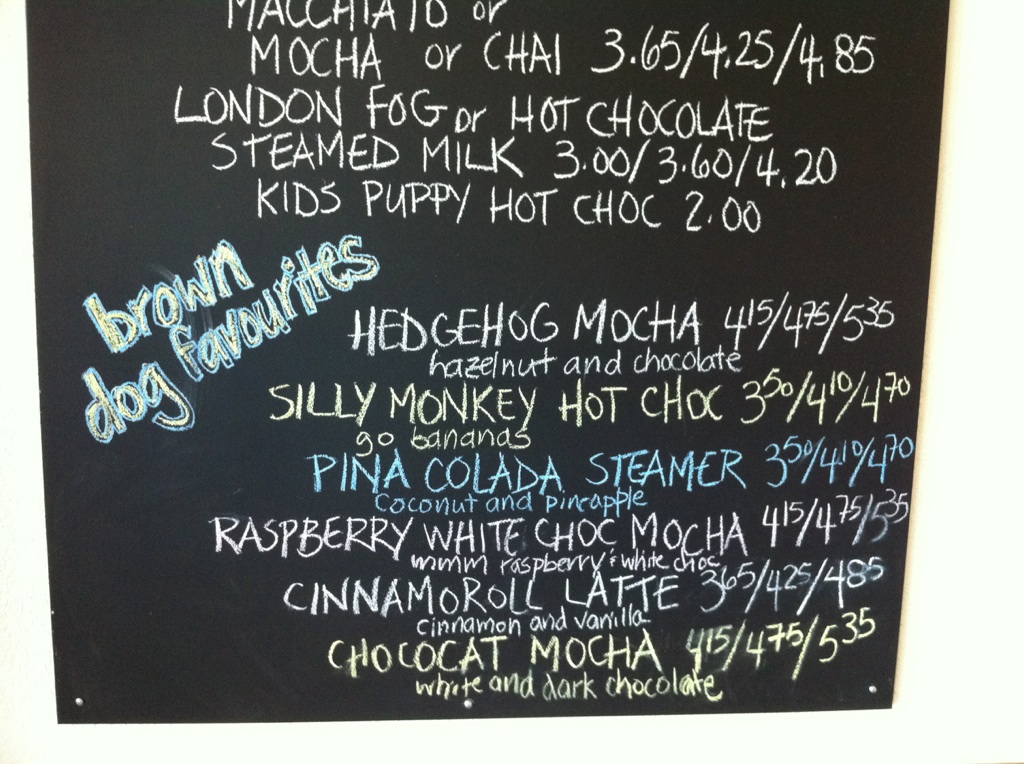 MACCHIATO or
MOCHA or CHAI 3.65/4.25/4.85
LONDON FOG or HOT CHOCOLATE
STEAMED MILK 3.00/3.60/4.20
KIDS PUPPY HOT CHOC 2.00
brown
dog favourites
HEDGEHOG MOCHA 415/475/535
hazelnut and chocolate
SILLY MONKEY HOT CHOC 350/410/470
go bananas
PINA COLADA STEAMER 350/410/470
coconut and pineapple
RASPBERRY WHITE CHOC MOCHA 415/475/535
mmmm raspberry & white choc
CINNAMOROLL LATTE 365/425/485
cinnamon and vanilla
CHOCOCAT MOCHA 415/475/535
white and dark chocolate